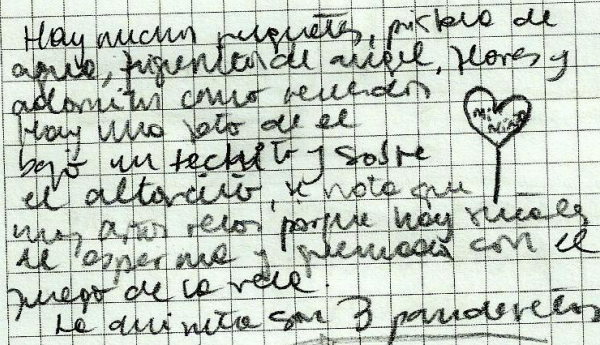 Hay muchos juguetes, pistola de
agua, figuritas de angel, flores y
adornitos como recuerdos
Hay una foto de el
bajo un techito y sobre
el altarcito, se nota que
hay velas porque hay señales
de esperma y quemado con el
fuego de la vela.
La animita son 3 panderetas
mi
niño